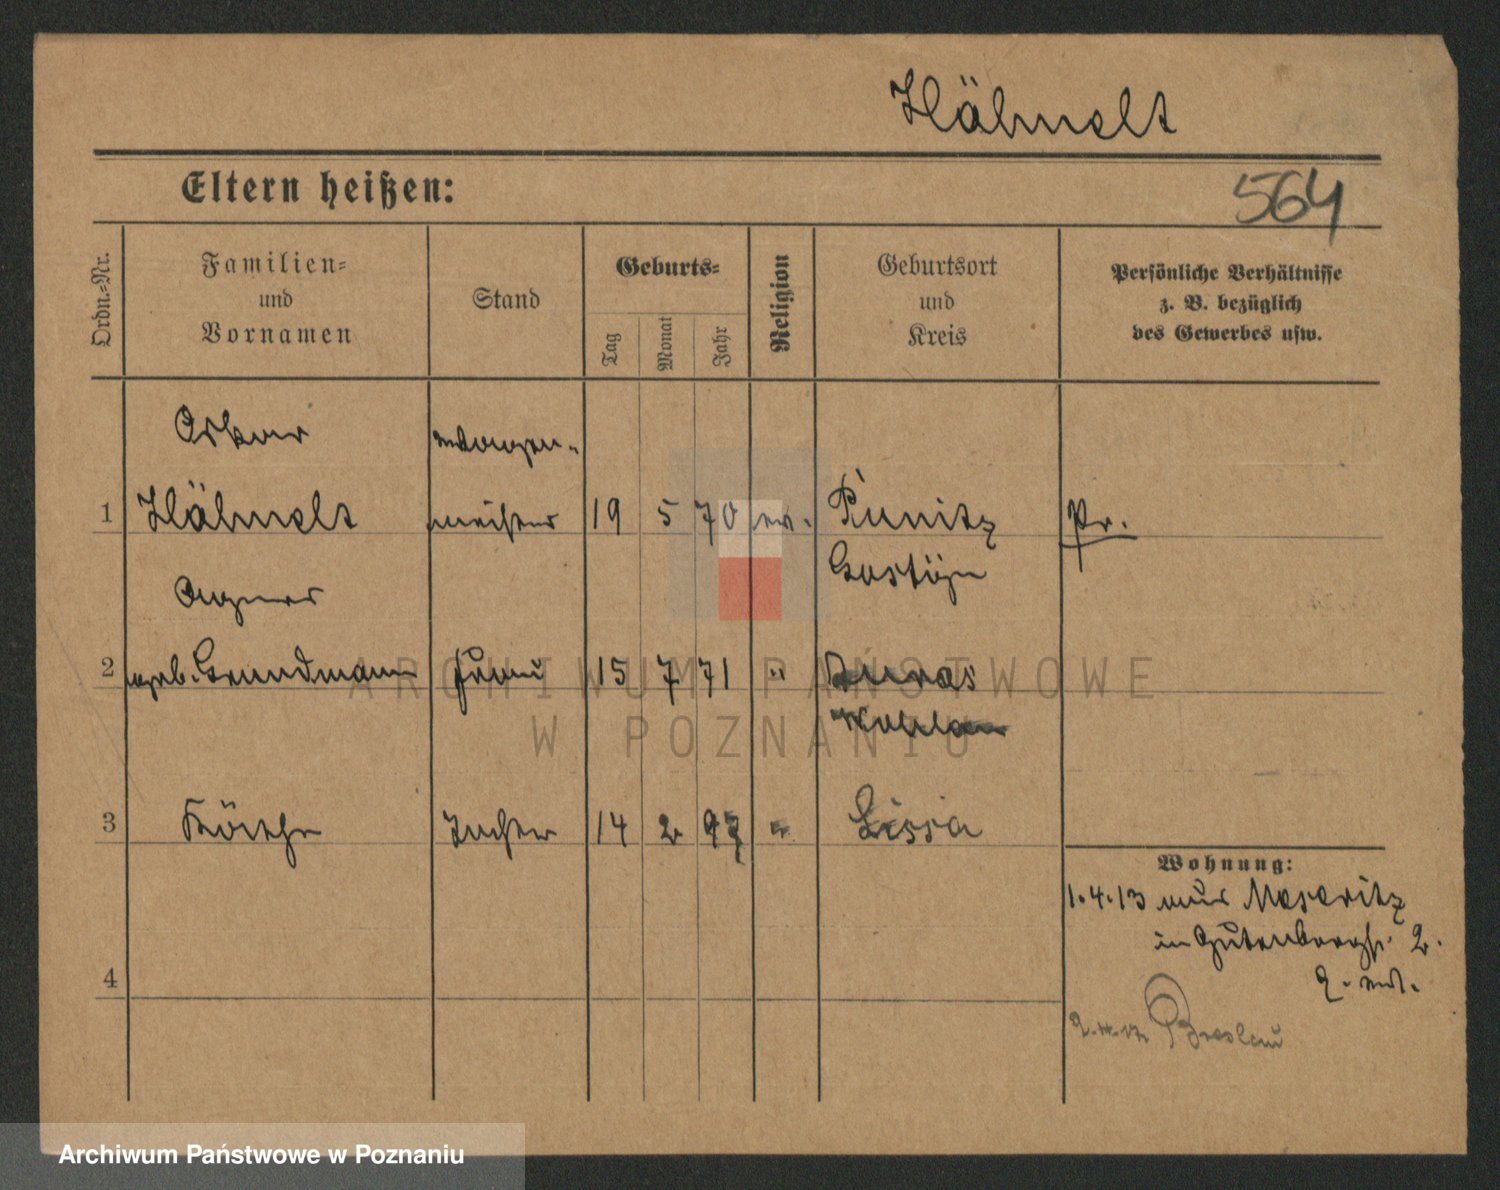 Hähnelt
Eltern heißen:
564
Ordn.-Nr.
Familien-
und
Vornamen
Stand
Geburts-
Tag
Monat
Jahr
Religion
Geburtsort
und
Kreis
Persönliche Verhältnisse
z. B. bezüglich
des Gewerbes usw.
Oskar
Wagen-
1 Hähnelt meister 19 5 70 ev. Punitz Pr.
Gostÿn
Agnes
2 geb. Grundmann Frau 15 7 71 " Auras
Wohlau
3 Käthe Tochter 14 2 97 " Lissa
Wohnung:
1.4.13 aus Meseritz
in Gutenbergstr. 2.
4
Breslau
ARCHIWUM PAŃSTWOWE
W POZNANIU
Archiwum Państwowe w Poznaniu